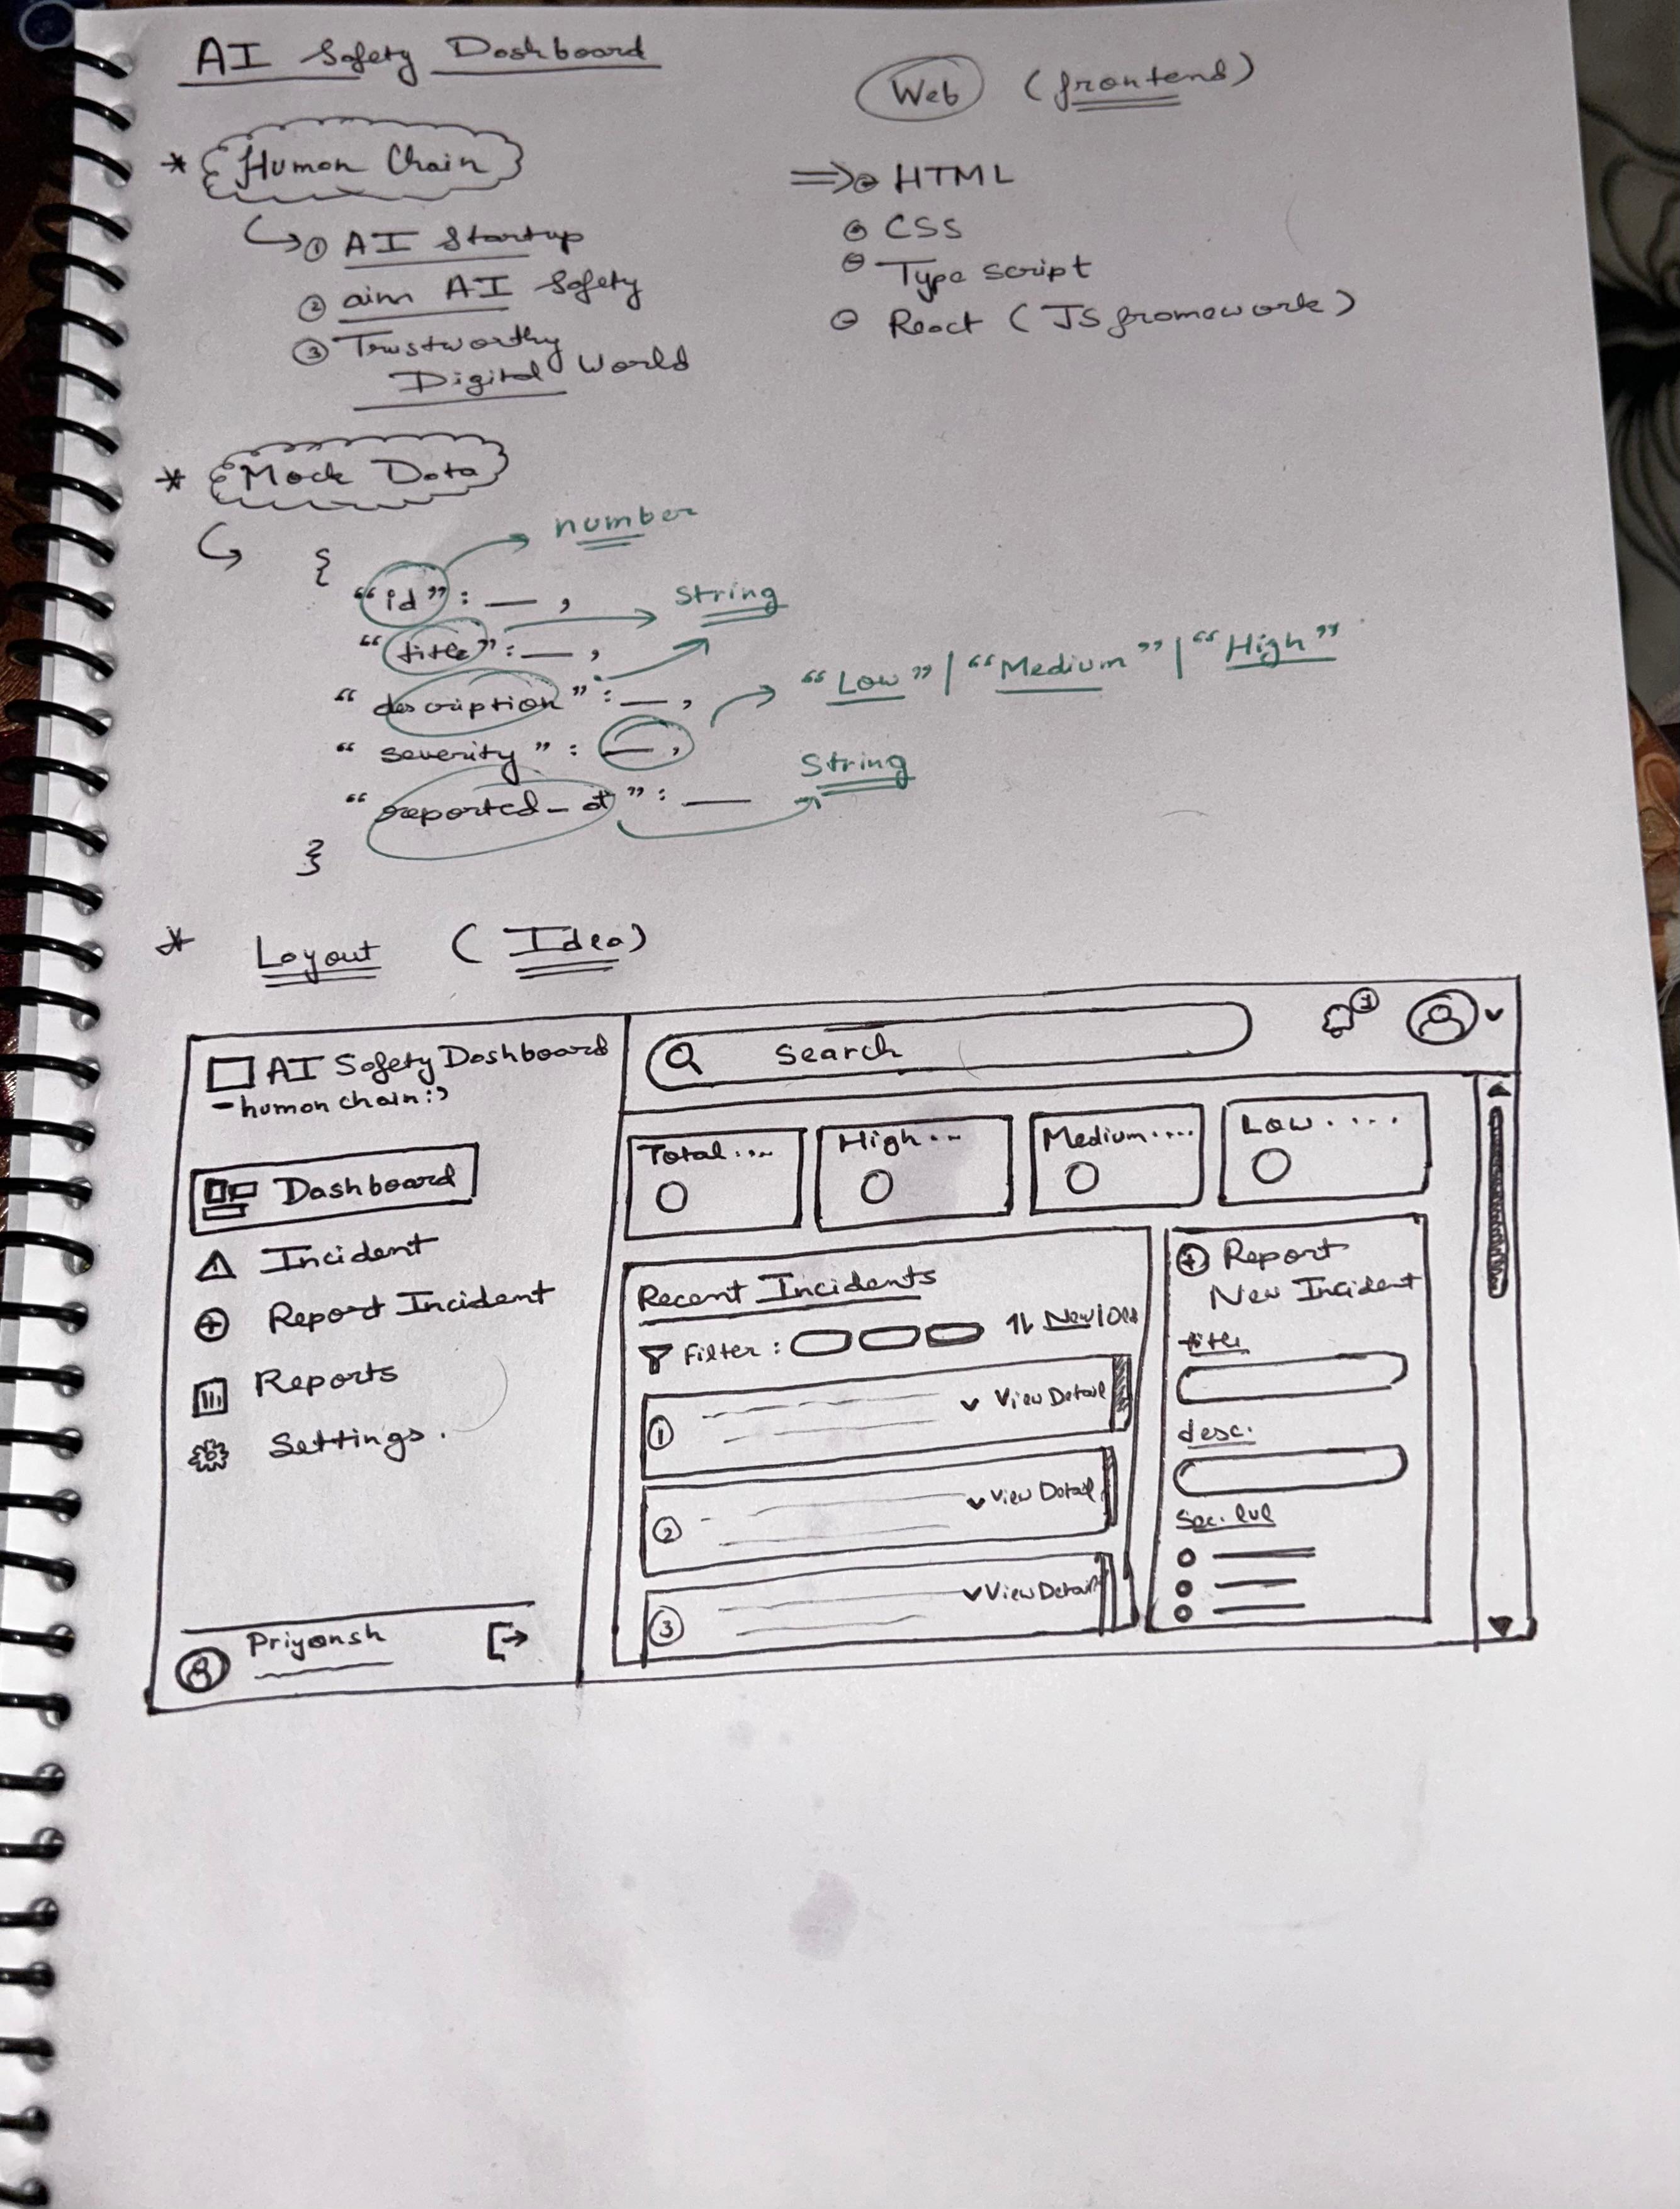 AI Safety Dashboard
Web (frontend)
* Human Chain
① AI Startup
② aim AI Safety
③ Trustworthy
Digital World
⇒ HTML
CSS
Type script
React (JS framework)
* Mock Data
{
number
"id" : __ ,
String
"title" : __ ,
"description" : __ ,
"Low" | "Medium" | "High"
"severity" : __ ,
String
"reported_at" : __
}
* Layout (Idea)
AI Safety Dashboard
- human chain :)
Dashboard
Incident
Report Incident
Reports
Settings.
Priyansh
Search
Total ...
High ...
Medium ....
Low ....
Recent Incidents
Filter : ↑↓ New/Old
① View Detail
② View Detail
③ View Detail
Report
New Incident
title
desc.
Sec. lvl